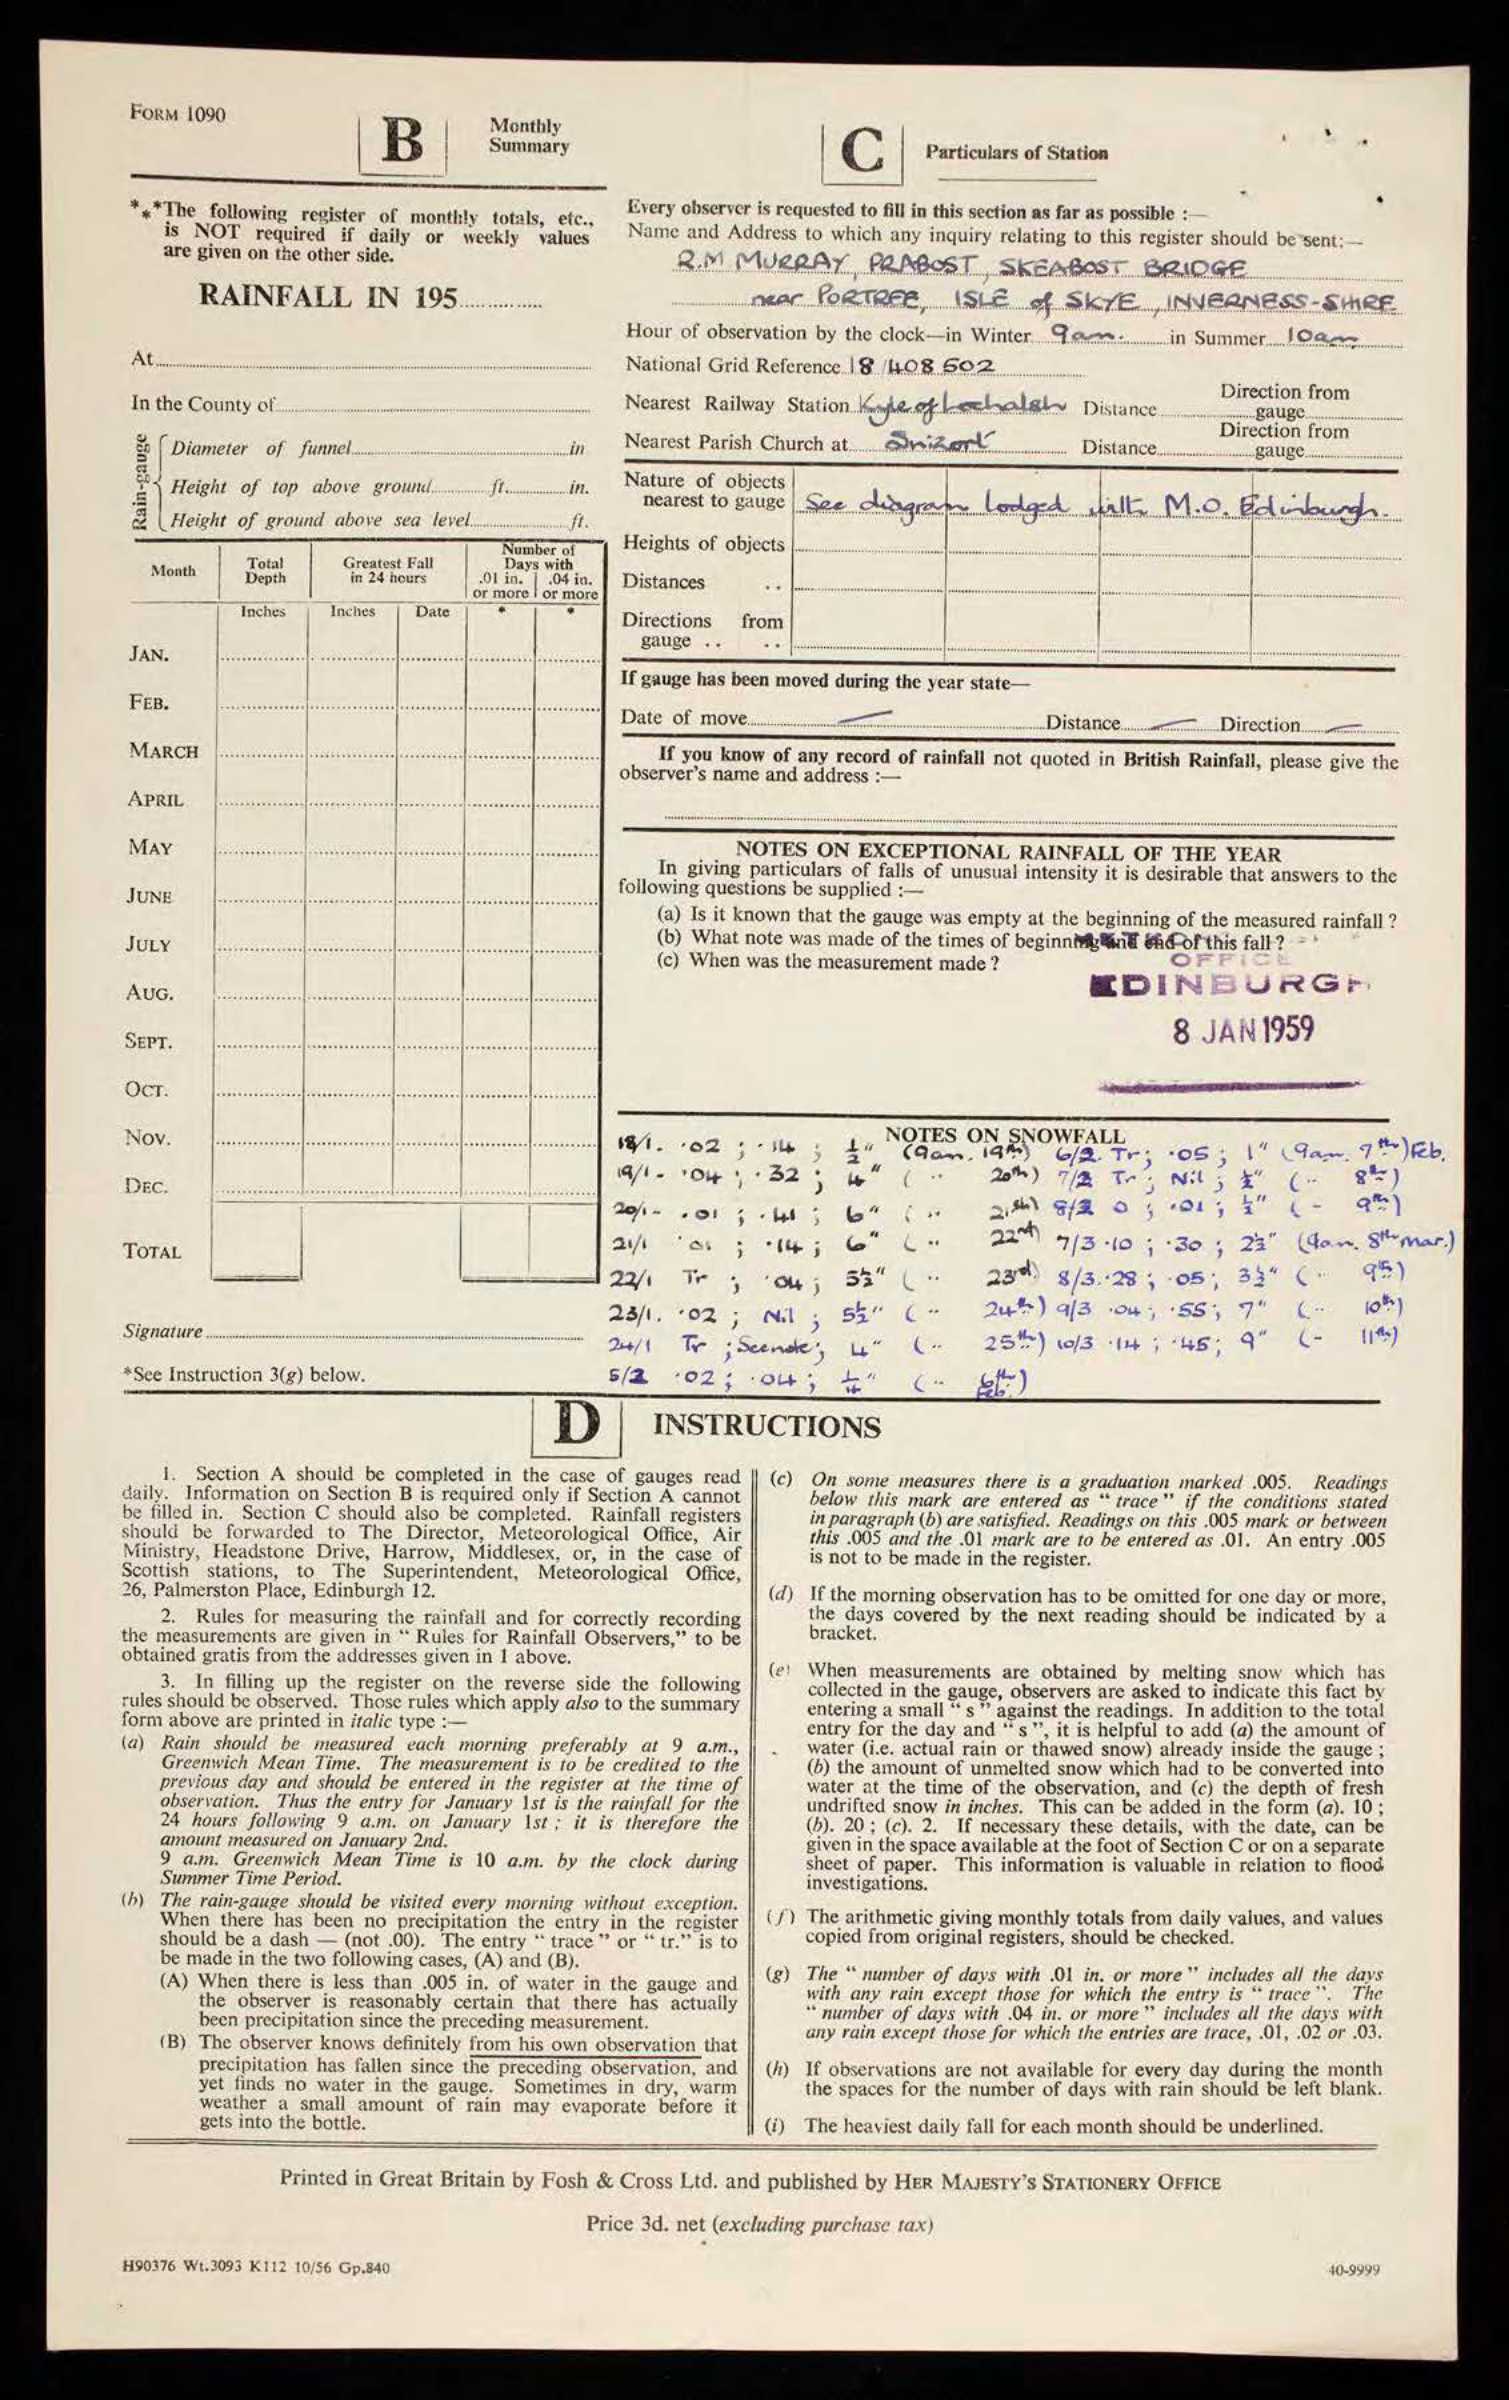 FORM 1090
B
Monthly
Summary
*⁎*The following register of monthly totals, etc.,
is NOT required if daily or weekly values
are given on the other side.
RAINFALL IN 195
At
In the County of
Rain-gauge
Diameter of funnel in
Height of top above ground ft. in.
Height of ground above sea level ft.
Month Total Depth Greatest Fall in 24 hours Number of Days with .01 in. or more .04 in. or more
Inches Inches Date * *
JAN.
FEB.
MARCH
APRIL
MAY
JUNE
JULY
AUG.
SEPT.
OCT.
NOV.
DEC.
TOTAL
Signature
*See Instruction 3(g) below.
C
Particulars of Station
Every observer is requested to fill in this section as far as possible :—
Name and Address to which any inquiry relating to this register should be sent:—
R.M MURRAY, PRABOST, SKEABOST BRIDGE
near PORTREE, ISLE of SKYE, INVERNESS-SHIRE
Hour of observation by the clock—in Winter 9am. in Summer 10am
National Grid Reference 18/408 502
Nearest Railway Station Kyle of Lochalsh Distance Direction from gauge
Nearest Parish Church at Snizort Distance Direction from gauge
Nature of objects
nearest to gauge See diagram lodged with M.O. Edinburgh.
Heights of objects
Distances ..
Directions from
gauge .. ..
If gauge has been moved during the year state—
Date of move — Distance — Direction —
If you know of any record of rainfall not quoted in British Rainfall, please give the
observer's name and address :—
NOTES ON EXCEPTIONAL RAINFALL OF THE YEAR
In giving particulars of falls of unusual intensity it is desirable that answers to the
following questions be supplied :—
(a) Is it known that the gauge was empty at the beginning of the measured rainfall ?
(b) What note was made of the times of beginning and end of this fall ?
(c) When was the measurement made ?
OFFICE
EDINBURGH
8 JAN 1959
NOTES ON SNOWFALL
18/1. ·02 ; ·14 ; ½" (9am. 19th) 6/2. Tr ; ·05 ; 1" (9am. 7th) Feb.
19/1 - ·04 ; ·32 ; 4" ( " 20th) 7/2 Tr ; Nil ; ½" ( " 8th)
20/1 - ·01 ; ·41 ; 6" ( " 21st) 8/2 0 ; ·01 ; ½" ( - 9th)
21/1 ·01 ; ·14 ; 6" ( " 22nd) 7/3 ·10 ; ·30 ; 2½" (9am. 8th Mar.)
22/1 Tr ; ·04 ; 5½" ( " 23rd) 8/3. ·28 ; ·05 ; 3½" ( " 9th)
23/1. ·02 ; Nil ; 5½" ( " 24th) 9/3 ·04 ; ·55 ; 7" ( " 10th)
24/1 Tr ; See note ; 4" ( " 25th) 10/3 ·14 ; ·45 ; 9" ( - 11th)
5/2 ·02 ; ·04 ; ¼" ( " 6th Feb.)
D
INSTRUCTIONS
1. Section A should be completed in the case of gauges read
daily. Information on Section B is required only if Section A cannot
be filled in. Section C should also be completed. Rainfall registers
should be forwarded to The Director, Meteorological Office, Air
Ministry, Headstone Drive, Harrow, Middlesex, or, in the case of
Scottish stations, to The Superintendent, Meteorological Office,
26, Palmerston Place, Edinburgh 12.
2. Rules for measuring the rainfall and for correctly recording
the measurements are given in " Rules for Rainfall Observers," to be
obtained gratis from the addresses given in 1 above.
3. In filling up the register on the reverse side the following
rules should be observed. Those rules which apply also to the summary
form above are printed in italic type :—
(a) Rain should be measured each morning preferably at 9 a.m.,
Greenwich Mean Time. The measurement is to be credited to the
previous day and should be entered in the register at the time of
observation. Thus the entry for January 1st is the rainfall for the
24 hours following 9 a.m. on January 1st ; it is therefore the
amount measured on January 2nd.
9 a.m. Greenwich Mean Time is 10 a.m. by the clock during
Summer Time Period.
(b) The rain-gauge should be visited every morning without exception.
When there has been no precipitation the entry in the register
should be a dash — (not .00). The entry " trace " or " tr." is to
be made in the two following cases, (A) and (B).
(A) When there is less than .005 in. of water in the gauge and
the observer is reasonably certain that there has actually
been precipitation since the preceding measurement.
(B) The observer knows definitely from his own observation that
precipitation has fallen since the preceding observation, and
yet finds no water in the gauge. Sometimes in dry, warm
weather a small amount of rain may evaporate before it
gets into the bottle.
(c) On some measures there is a graduation marked .005. Readings
below this mark are entered as " trace " if the conditions stated
in paragraph (b) are satisfied. Readings on this .005 mark or between
this .005 and the .01 mark are to be entered as .01. An entry .005
is not to be made in the register.
(d) If the morning observation has to be omitted for one day or more,
the days covered by the next reading should be indicated by a
bracket.
(e) When measurements are obtained by melting snow which has
collected in the gauge, observers are asked to indicate this fact by
entering a small " s " against the readings. In addition to the total
entry for the day and " s ", it is helpful to add (a) the amount of
water (i.e. actual rain or thawed snow) already inside the gauge ;
(b) the amount of unmelted snow which had to be converted into
water at the time of the observation, and (c) the depth of fresh
undrifted snow in inches. This can be added in the form (a). 10 ;
(b). 20 ; (c). 2. If necessary these details, with the date, can be
given in the space available at the foot of Section C or on a separate
sheet of paper. This information is valuable in relation to flood
investigations.
(f) The arithmetic giving monthly totals from daily values, and values
copied from original registers, should be checked.
(g) The " number of days with .01 in. or more " includes all the days
with any rain except those for which the entry is " trace ". The
" number of days with .04 in. or more " includes all the days with
any rain except those for which the entries are trace, .01, .02 or .03.
(h) If observations are not available for every day during the month
the spaces for the number of days with rain should be left blank.
(i) The heaviest daily fall for each month should be underlined.
Printed in Great Britain by Fosh & Cross Ltd. and published by HER MAJESTY'S STATIONERY OFFICE
Price 3d. net (excluding purchase tax)
H90376 Wt.3093 K112 10/56 Gp.840
40-9999